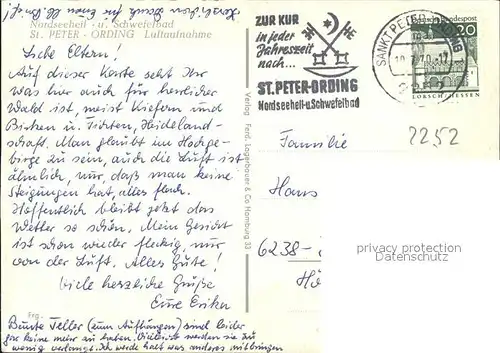 Nordseeheil- u. Schwefelbad
St. PETER - ORDING Luftaufnahme
Liebe Eltern!
Auf dieser Karte seht Ihr
was hier auch für herrlicher
Wald ist, meist Kiefern und
Birken u. Fichten, Heideland-
schaft. Man glaubt im Hochge-
birge zu sein, auch die Luft ist
ähnlich, nur, daß man keine
Steigungen hat, alles flach.
Hoffentlich bleibt jetzt das
Wetter so schön. Mein Gesicht
ist schon wieder fleckig, nur
von der Luft. Alles Gute!
Viele herzliche Grüße
Eure Erika
Bunte Teller (zum Aufhängen) sind leider
gar keine mehr zu haben. Vielleicht werden sie zu
wenig verlangt. Ich werde halt was anderes mitbringen
Verlag Ferd. Lagerbauer & Co Hamburg 33
ZUR KUR
in jeder
Jahreszeit
nach...
ST. PETER-ORDING
Nordseeheil-u.Schwefelbad
SANKT PETER-ORDING
10.7.70.-17
2252
Deutsche Bundespost
20
LORSCH/HESSEN
2252
Familie
Hans
6238-
privacy protection
Datenschutz